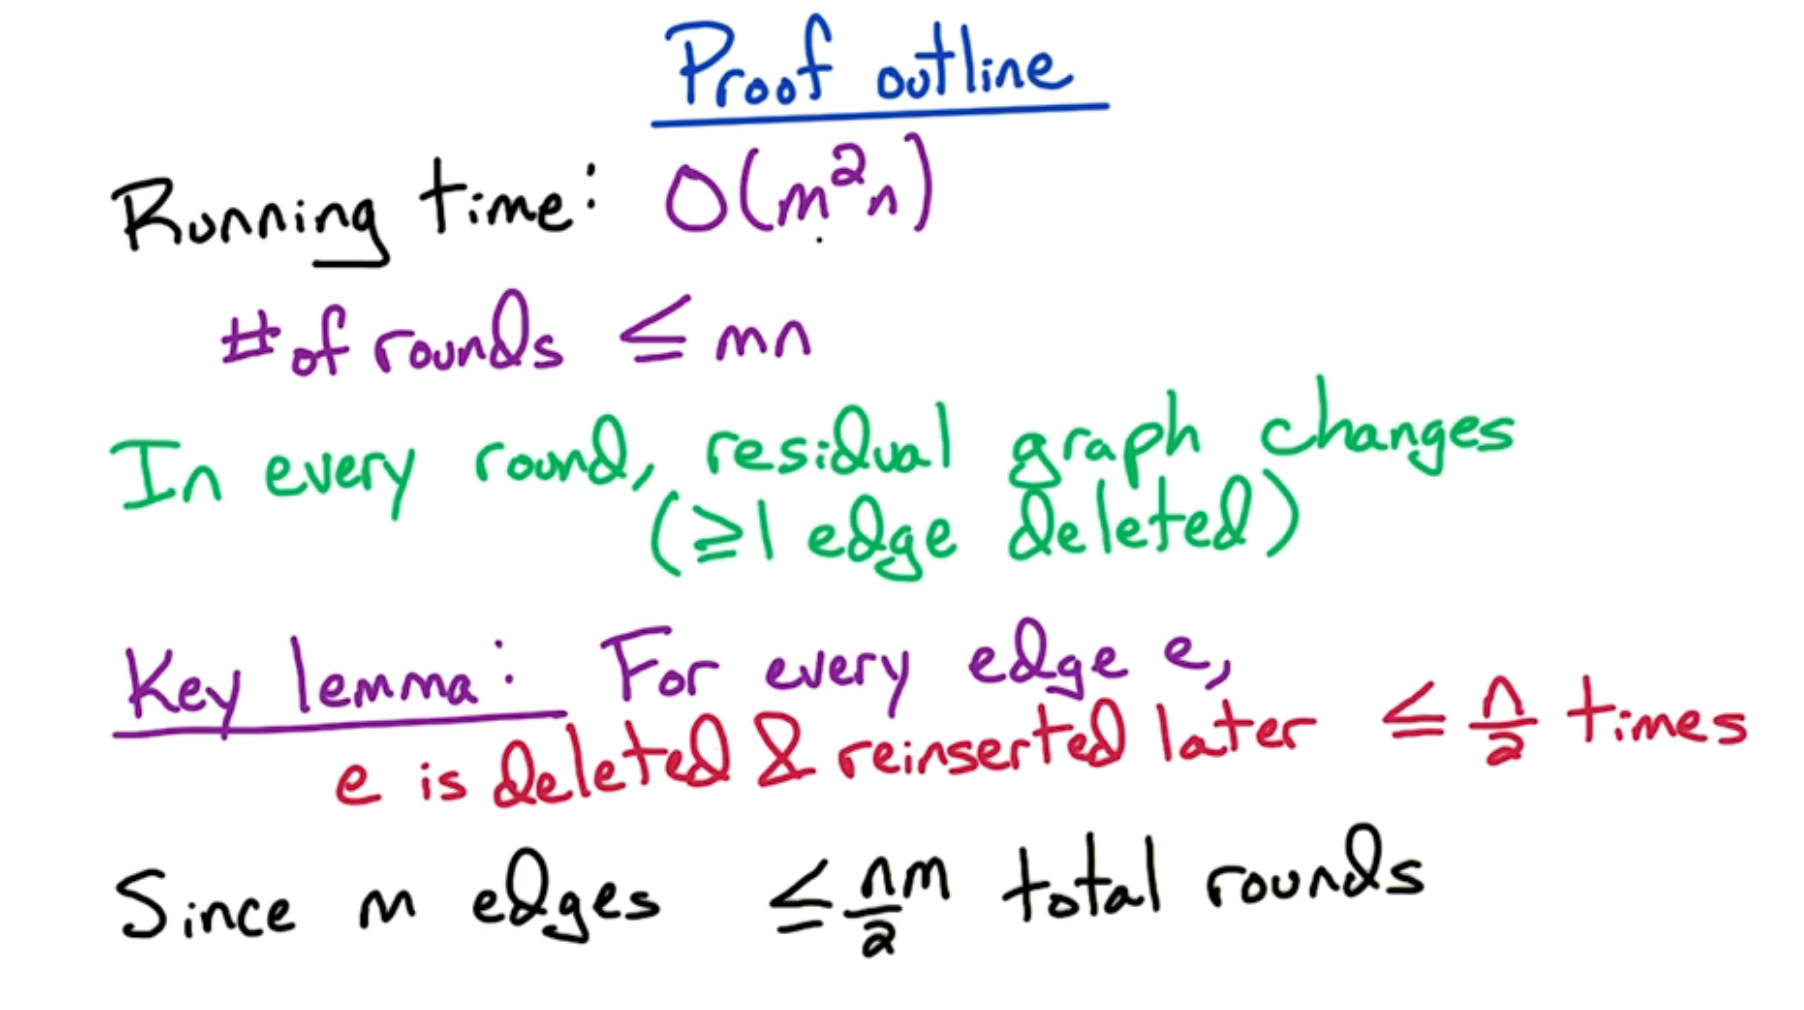 Proof outline
Running time: O(m²n)
# of rounds ≤ mn
In every round, residual graph changes
(≥1 edge deleted)
Key lemma: For every edge e,
e is deleted & reinserted later ≤ n/2 times
Since m edges ≤ nm/2 total rounds